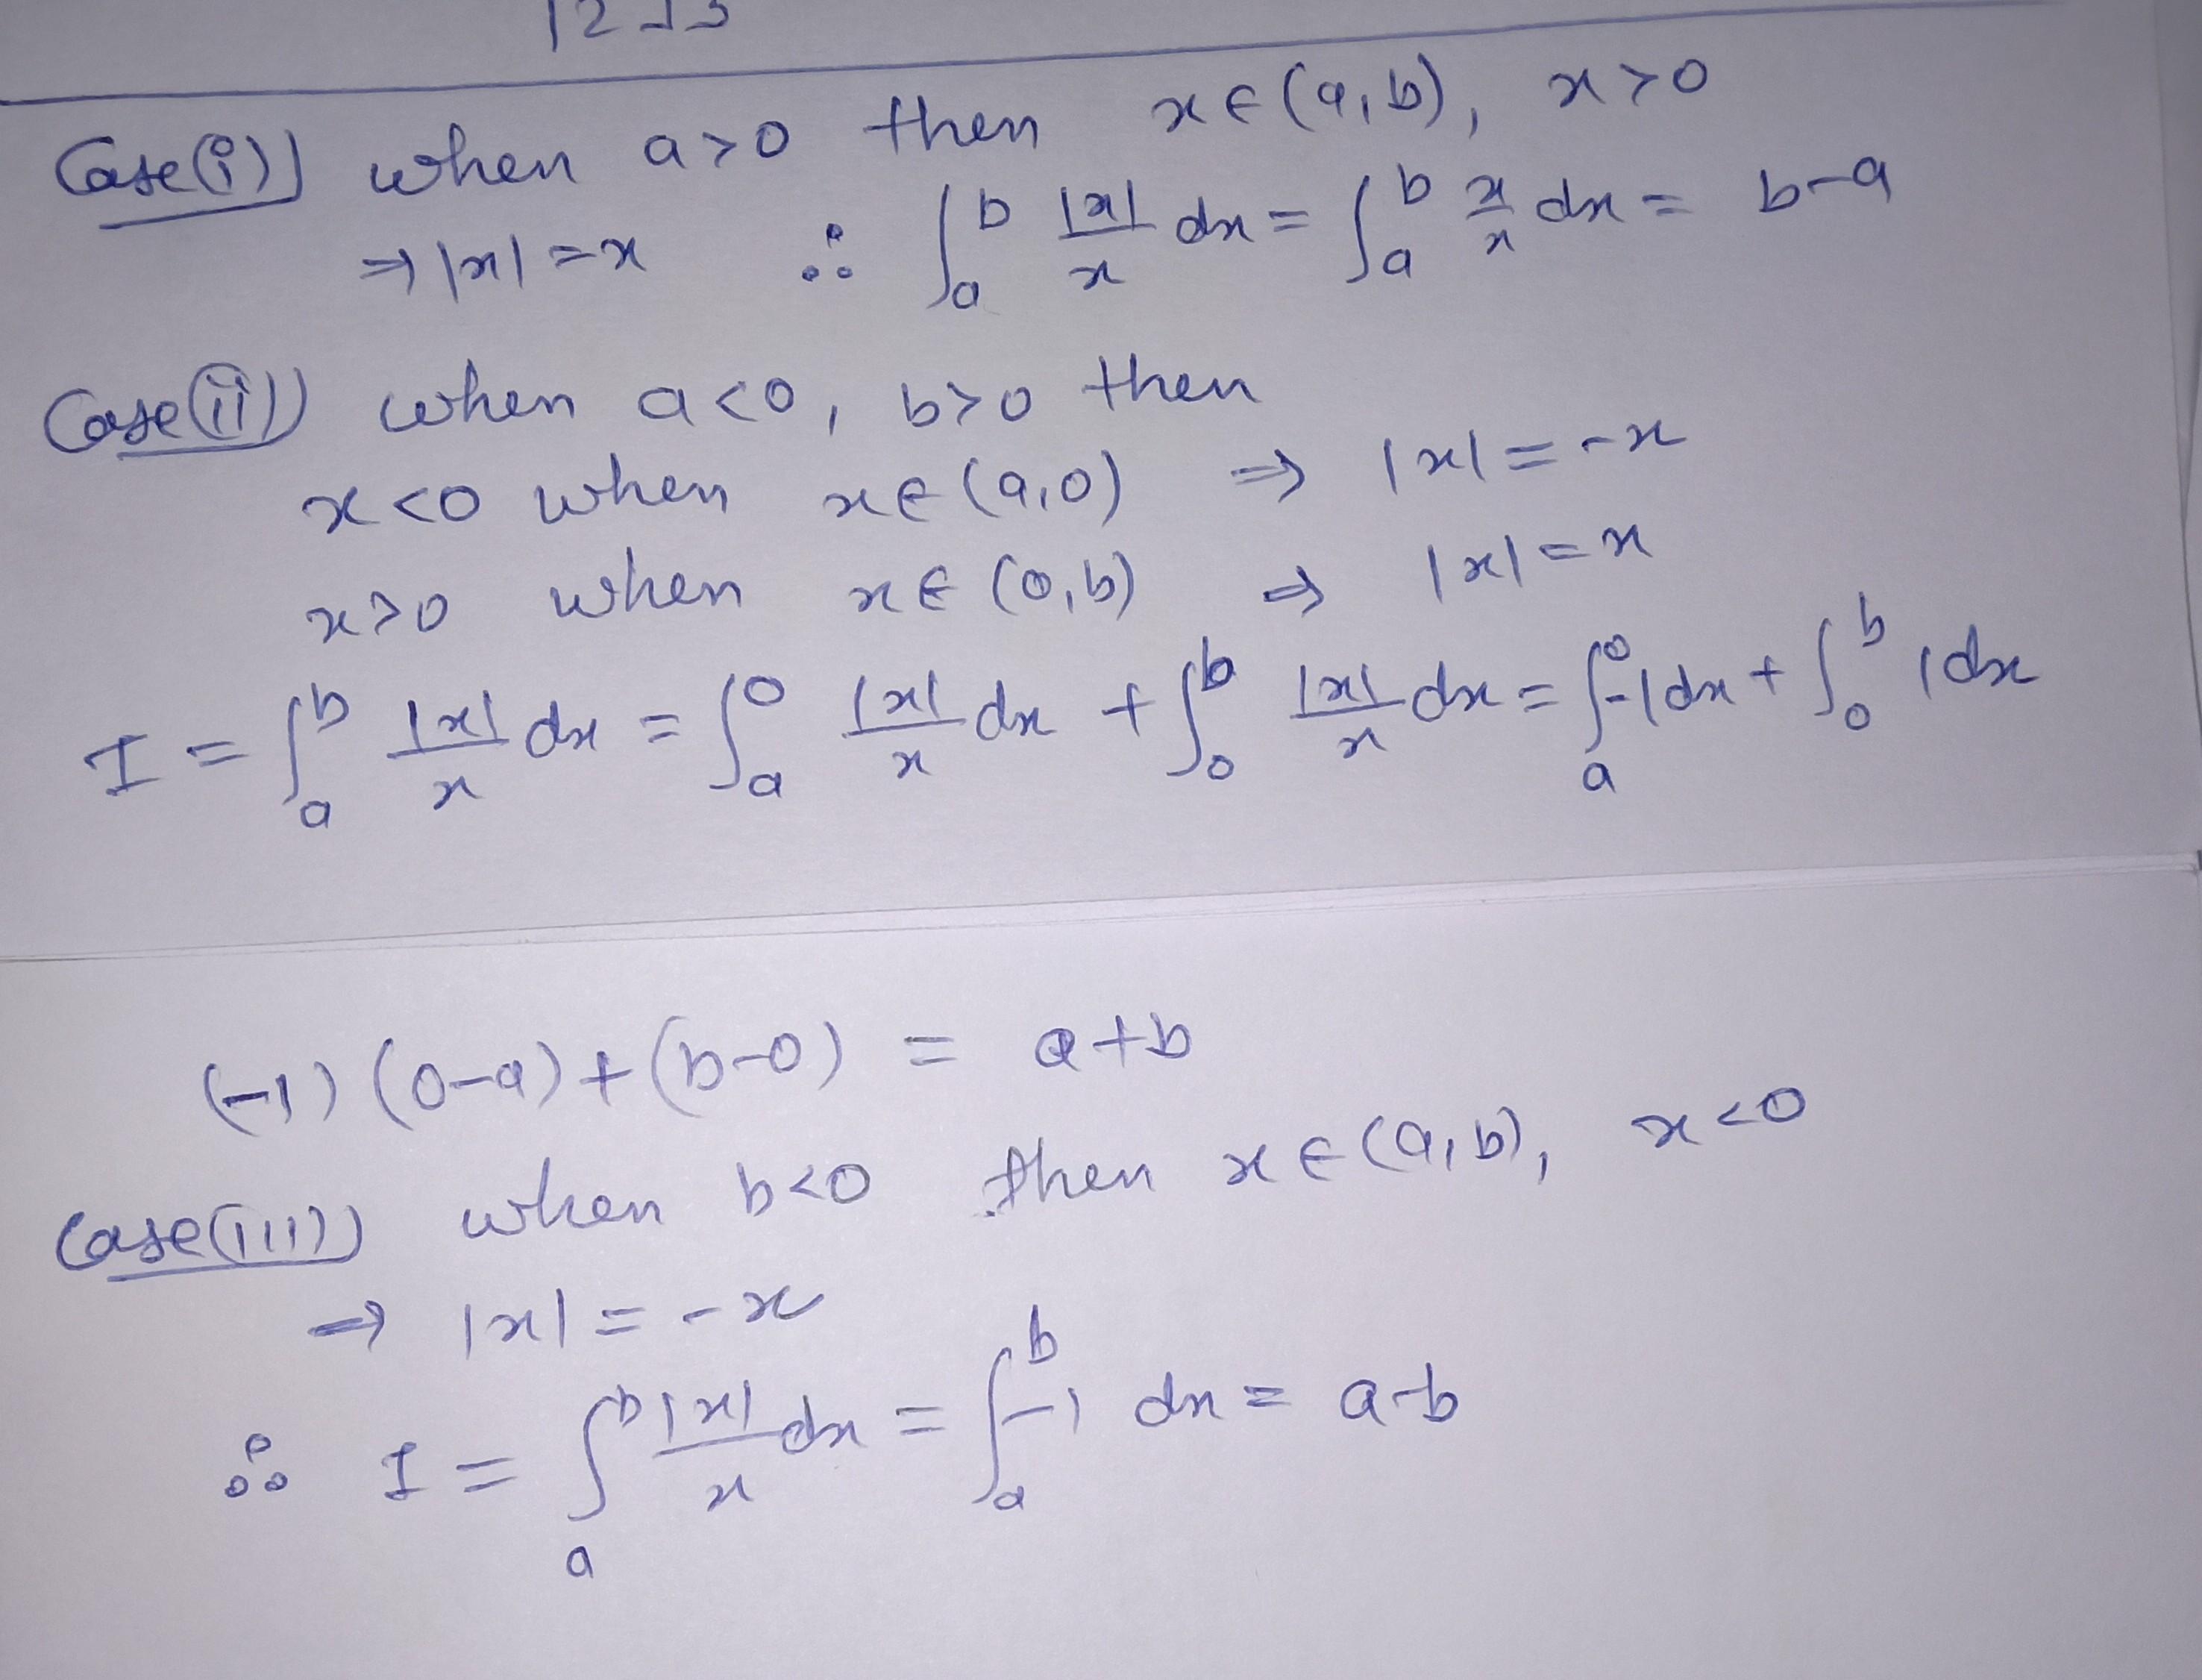 Case(i)) when a>0 then x∈(a,b), x>0
⇒|x|=x ∴ ∫_a^b |x|/x dx = ∫_a^b x/x dx = b-a
Case(ii)) when a<0, b>0 then
x<0 when x∈(a,0) ⇒ |x|=-x
x>0 when x∈(0,b) ⇒ |x|=x
I = ∫_a^b |x|/x dx = ∫_a^0 |x|/x dx + ∫_0^b |x|/x dx = ∫_a^0 -1dx + ∫_0^b 1dx
(-1)(0-a)+(b-0) = a+b
Case(iii)) when b<0 then x∈(a,b), x<0
⇒ |x|=-x
∴ I = ∫_a^b |x|/x dx = ∫_a^b -1 dx = a-b